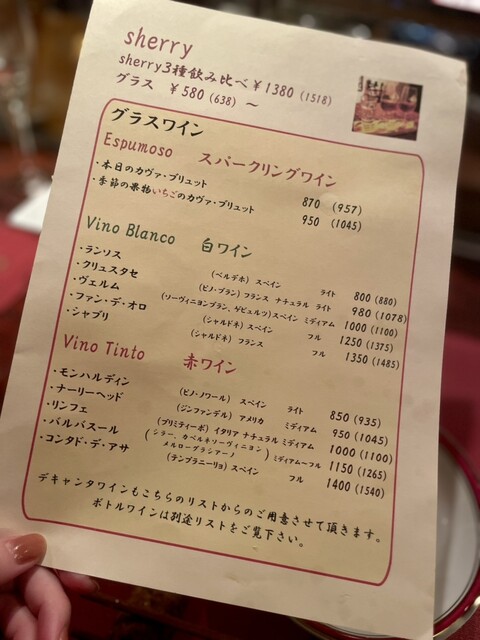 sherry
sherry3種飲み比べ ¥1380 (1518)
グラス ¥580 (638) ～
グラスワイン
Espumoso スパークリングワイン
・本日のカヴァ・ブリュット 870 (957)
・季節の果物いちごのカヴァ・ブリュット 950 (1045)
Vino Blanco 白ワイン
・ランソス (ベルデホ) スペイン ライト 800 (880)
・クリュスタセ (ピノ・ブラン) フランス ナチュラル ライト 980 (1078)
・ヴェルム (ソーヴィニヨンブラン、ゲビュルツ) スペイン ミディアム 1000 (1100)
・ファン・デ・オロ (シャルドネ) スペイン フル 1250 (1375)
・シャブリ (シャルドネ) フランス フル 1350 (1485)
Vino Tinto 赤ワイン
・モンハルディン (ピノ・ノワール) スペイン ライト 850 (935)
・ナーリーヘッド (ジンファンデル) アメリカ ミディアム 950 (1045)
・リンフェ (プリミティーボ) イタリア ナチュラル ミディアム 1000 (1100)
・バルバスール (シラー、カベルネソーヴィニヨン メルローグラシアーノ) ミディアム～フル 1150 (1265)
・コンタド・デ・アサ (テンプラニーリョ) スペイン フル 1400 (1540)
デキャンタワインもこちらのリストからのご用意させて頂きます。
ボトルワインは別途リストをご覧下さい。